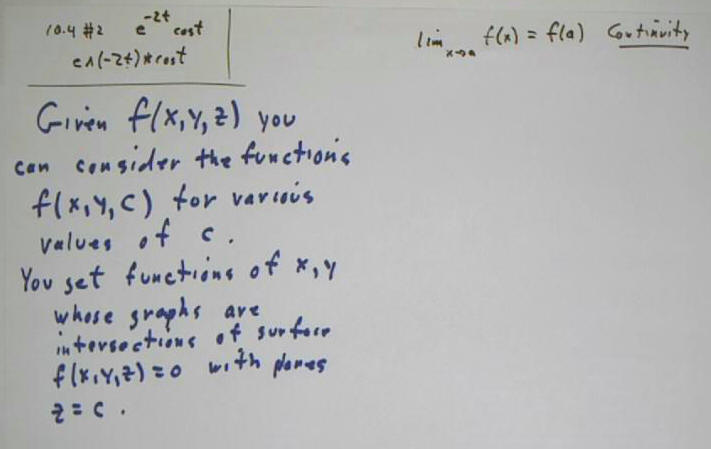 10.4 #2 e^-2t cost
e^(-2t)*cost
lim x→a f(x) = f(a) Continuity
Given f(x,y,z) you
can consider the functions
f(x,y,c) for various
values of c.
You get functions of x,y
whose graphs are
intersections of surface
f(x,y,z)=0 with planes
z=c.